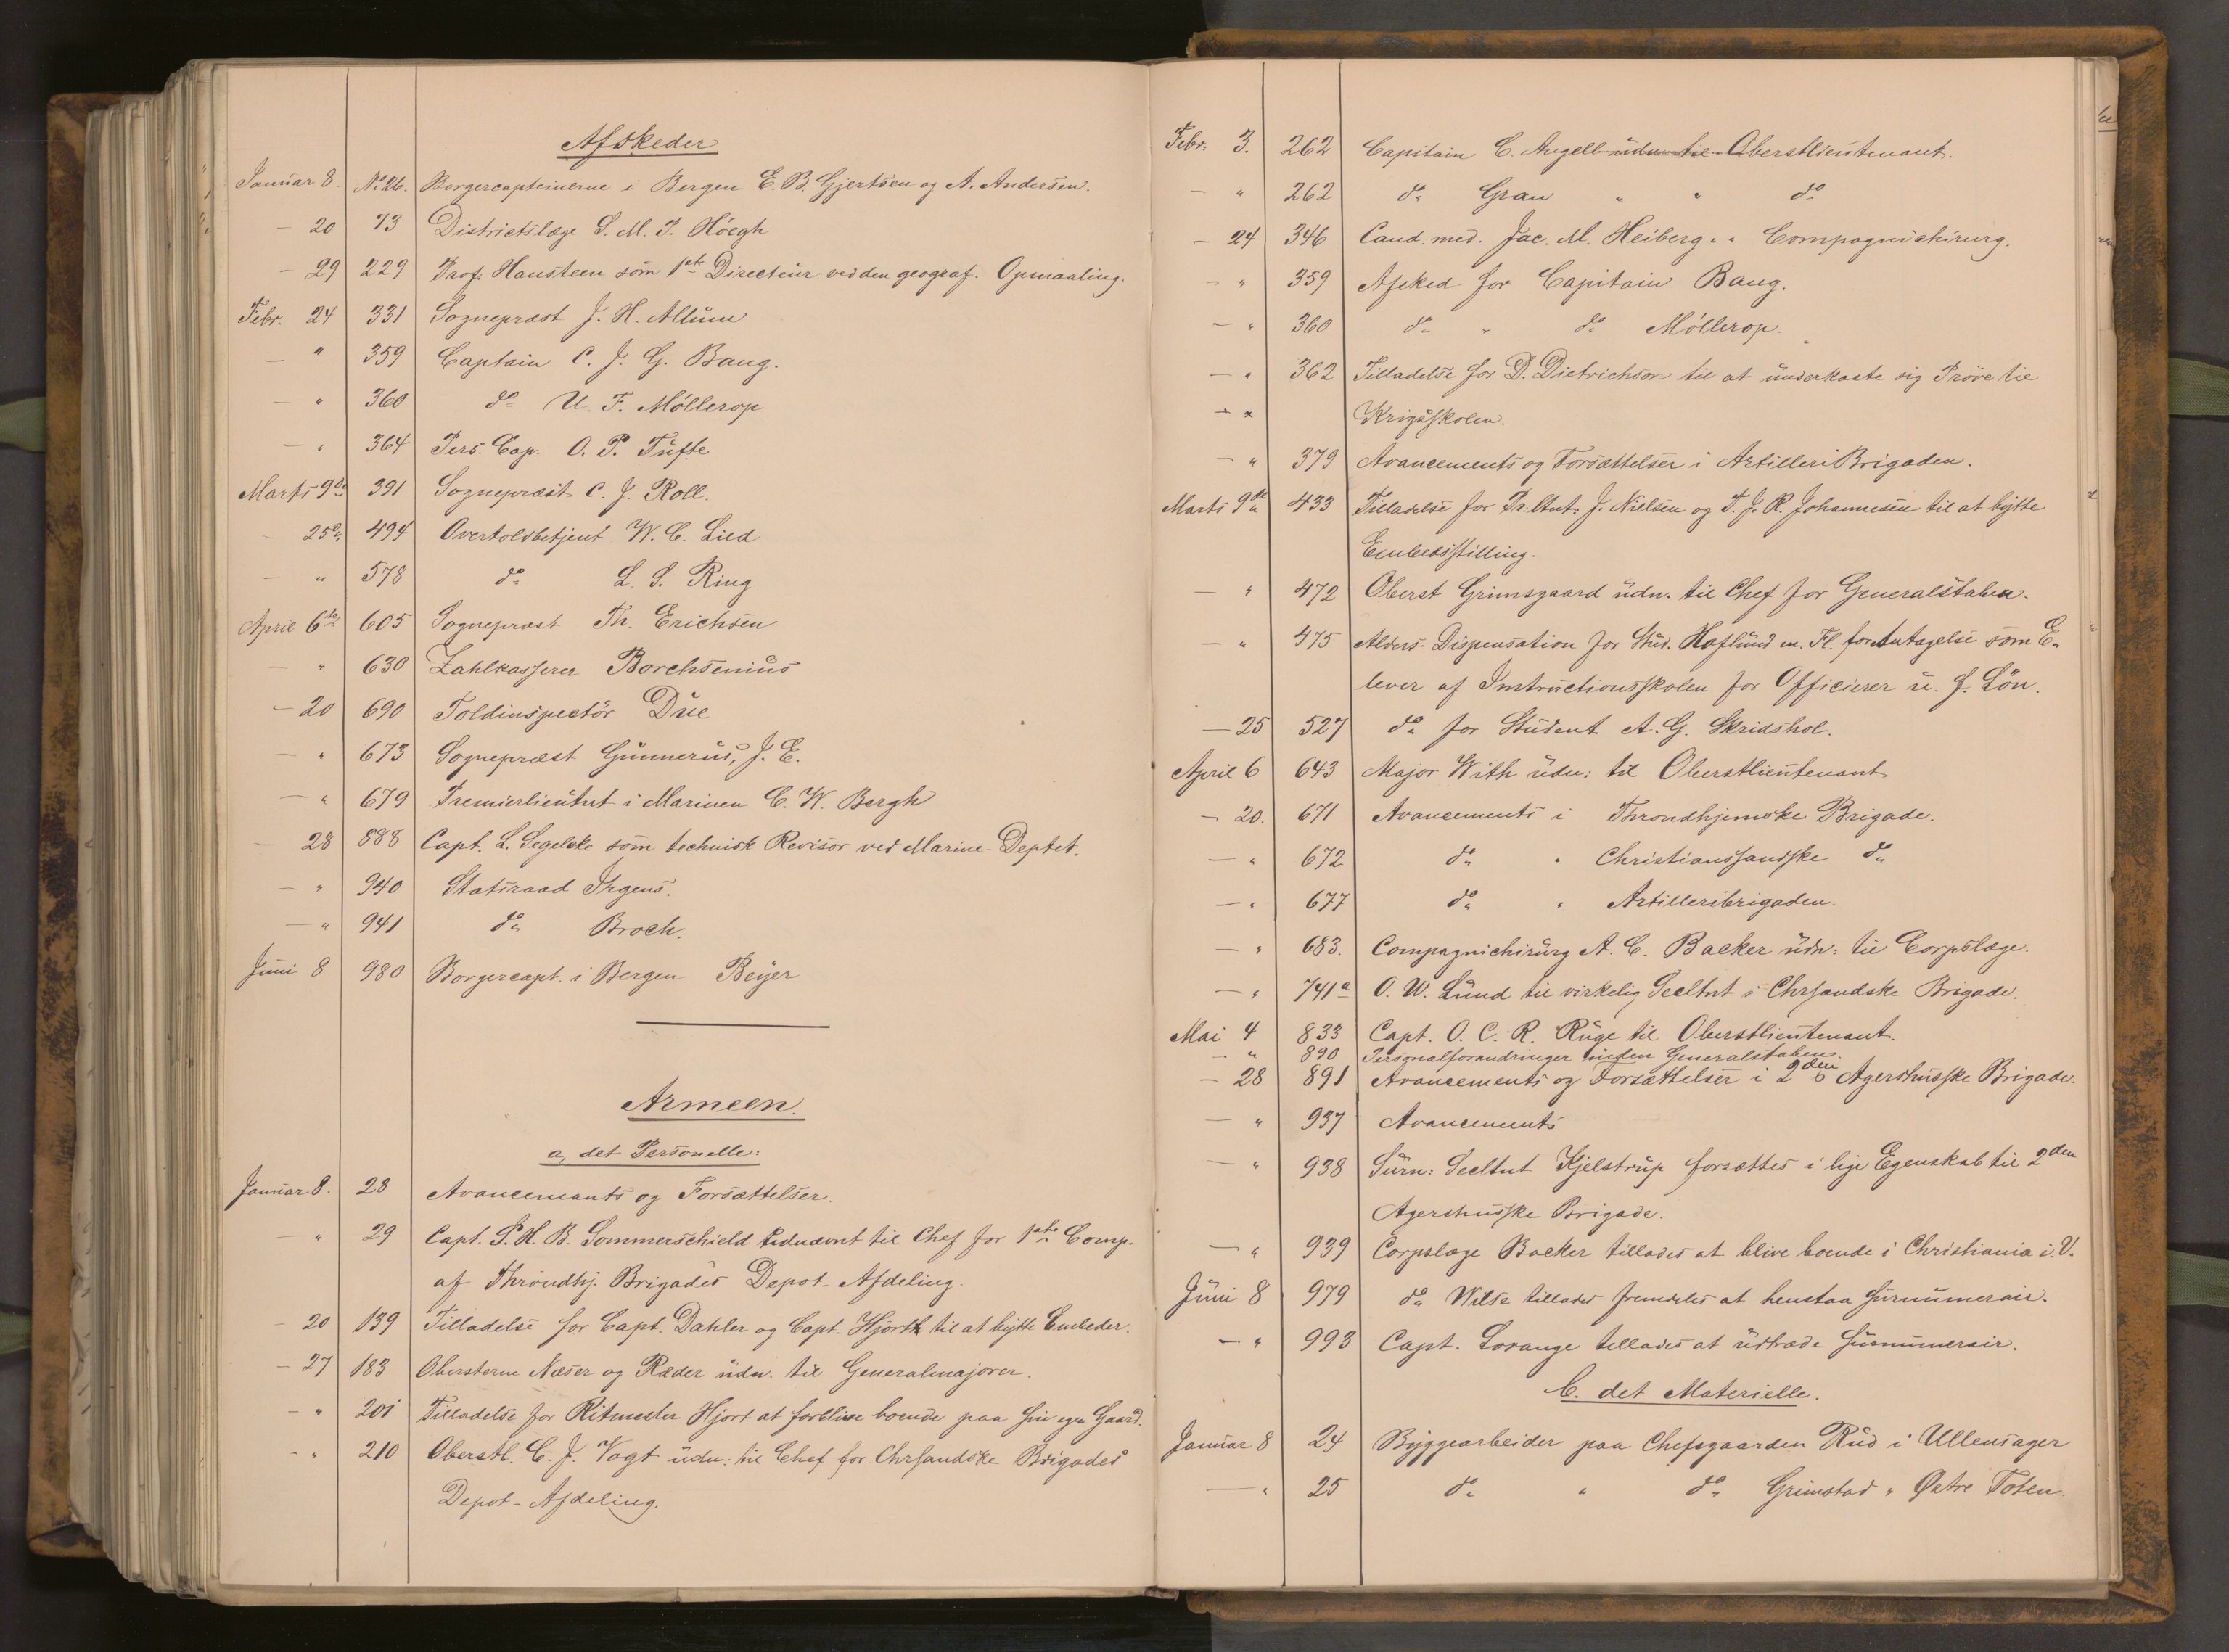 Afskeder
Januar 8. No. 26. Borgercapteinerne i Bergen E. B. Gjertsen og A. Andersen.
- 20 73 Districtslæge S. M. J. Höegh
- 29 229 Prof. Hansteen som 1ste Directeur ved den geograf. Opmaaling.
Febr. 24 331 Sognepræst J. H. Allum
- " 359 Captain C. J. G. Bang.
- " 360 do U. F. Möllerop
- " 364 Pers. Cap. O. P. Tufte
Marts 9de 391 Sognepræst C. J. Roll.
25de 494 Overtoldbetjent W. C. Lied
- " 578 do L. S. Ring
April 6te 605 Sognepræst Th. Erichsen
- " 630 Zahlkasserer Borchsenius
- 20 690 Toldinspectör Due
- " 673 Sognepræst Gunnerus, J. E.
- " 679 Premierlieutnt i Marinen C. W. Bergh
- 28 888 Capt. L. Segelcke som technisk Revisor ved Marine-Deptet.
- " 940 Statsraad Irgens.
- " 941 do Broch.
Juni 8 980 Borgercapt. i Bergen Beyer
Armeen.
a, det Personelle:
Januar 8. 28 Avancemants og Forsættelser.
- " 29 Capt. S. H. B. Sommerschield udnævnt til Chef for 1ste Comp.
af Throndhj. Brigades Depot-Afdeling.
- 20 139 Tilladelse for Capt. Dahler og Capt. Hjorth til at bytte Embeder.
- 27 183 Obersterne Næser og Ræder udn. til Generalmajorer.
- " 201 Tilladelse for Ritmester Hjort at forblive boende paa sin egen Gaard.
- " 210 Oberstl. C. J. Vogt udn: til Chef for Chrsandske Brigades
Depot-Afdeling.
Febr: 3. 262 Capitain C. Angell udn. til Oberstlieutenant.
- " 262 do Gran " " do
- 24 346 Cand. med. Jac. M. Heiberg " " Compagnichirurg.
- " 359 Afsked for Capitain Bang.
- " 360 do " do Möllerop.
- " 362 Tilladelse for D. Dietrichson til at underkaste sig Pröve til
- " Krigsskolen.
- " 379 Avancements og Forsættelser i ArtilleriBrigaden.
Marts 9de 433 Tilladelse for Pr.ltnt. J. Nielsen og T. J. R. Johannesen til at bytte
Embedsstilling.
- " 472 Oberst Grimsgaard udn. til Chef for Generalstaben.
- " 475 Alders-Dispensation for Stud. Hoflund m. Fl. for Antagelse som E-
lever af Instructionsskolen for Officierer u. f. Lön.
- 25 527 do for Student A. G. Skridshol.
April 6 643 Major With udn: til Oberstlieutenant
- 20. 671 Avancements i Throndhjemske Brigade.
- " 672 do " Christianssandske do
- " 677 do " Artilleribrigaden.
- " 683. Compagnichirurg A. C. Backer udn: til Corpslæge.
- " 741a O. W. Lund til virkelig Secltnt i Chrsandske Brigade.
Mai 4 833 Capt. O. C. R. Ruge til Oberstlieutenant.
- " 890 Personalforandringer inden Generalstaben.
- 28 891 Avancements og Forsættelser i 2den Agershusske Brigade.
- " 937 Avancements
- " 938 Surn: Secltnt Kjelstrup forsættes i lige Egenskab til 2den
Agershusske Brigade.
- " 939 Corpslæge Backer tillades at blive boende i Christiania i. V.
Juni 8 979 do Wilse tillades fremdeles at henstaa surnumerair.
- " 993 Capt. Lorange tillades at udtræde surnumerair.
b. det Materielle.
Januar 8 24 Byggearbeider paa Chefsgaarden Rud i Ullensager
- " 25 do " do Grimstad " Østre Toten.